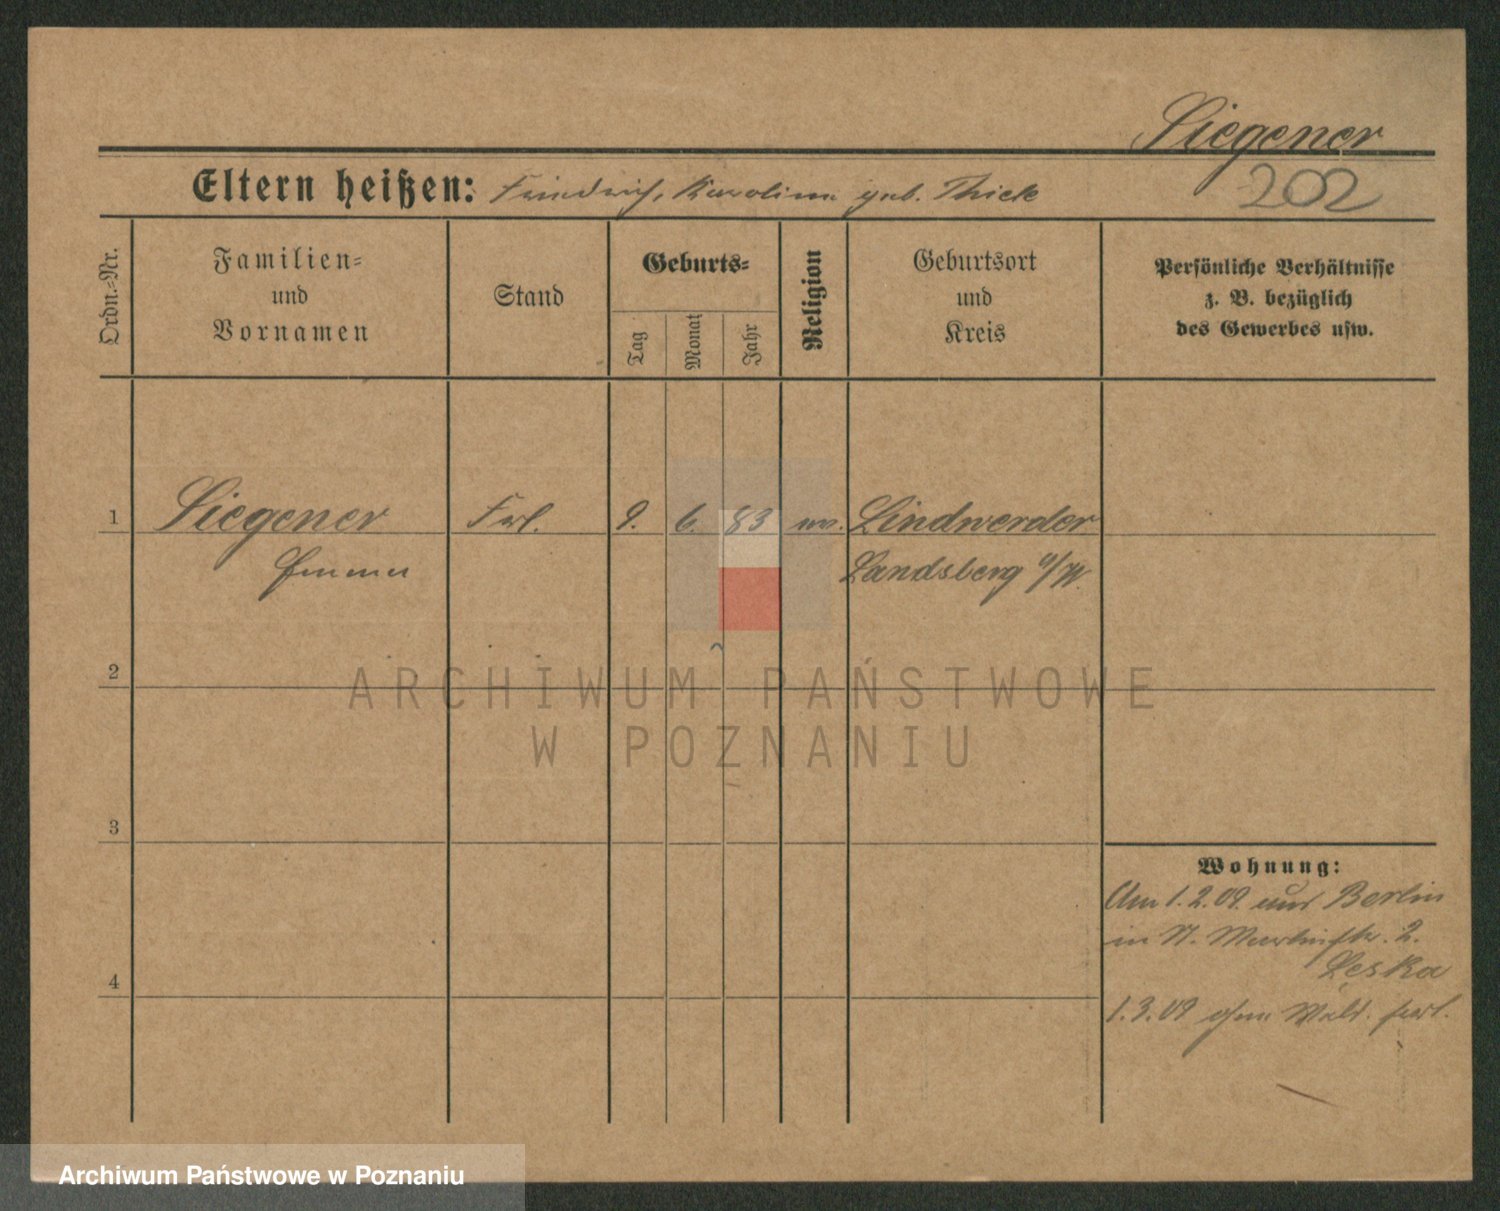 Siegener
202
Eltern heißen: Friedrich, Karoline geb. Thiele
Ordn.-Nr.
Familien-
und
Vornamen
Stand
Geburts-
Tag
Monat
Jahr
Religion
Geburtsort
und
Kreis
Persönliche Verhältnisse
z. B. bezüglich
des Gewerbes usw.
1 Siegener Frl. 9. 6. 83 ev. Lindwerder
Emma Landsberg a/W.
2
3
4
Wohnung:
Am 1.2.09. aus Berlin
in St. Martinstr. 2.
Leska
1.3.09 ohne
ARCHIWUM PAŃSTWOWE
W POZNANIU
Archiwum Państwowe w Poznaniu